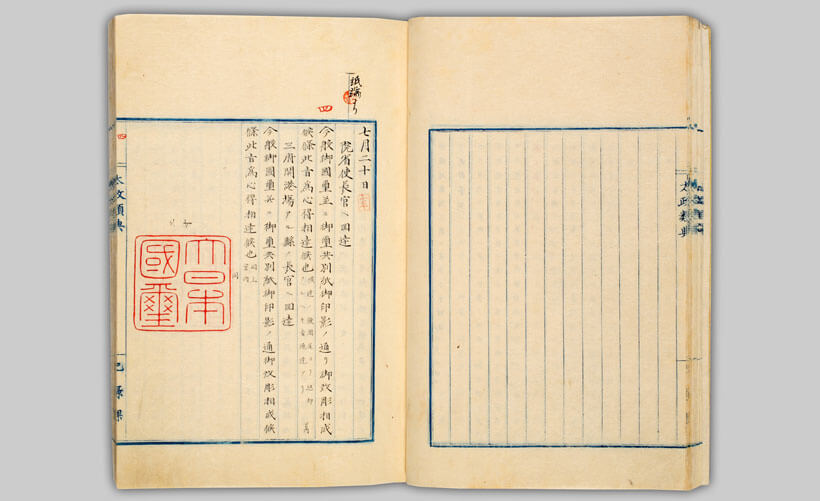 太政類典
四
七月二十日
院省使長官ヘ回達
今般御國璽並ニ御璽共別紙御印影ノ通リ御改彫相成
候條此旨為心得相達候也
三府開港場アル縣ノ長官ヘ回達
今般御國璽並ニ御璽共別紙御印影ノ通御改彫相成候
條此旨為心得相達候也
大日本
國璽
四
太政類典
記録課